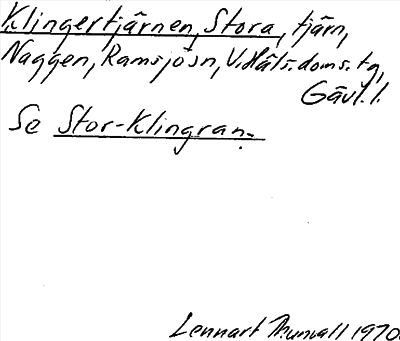 Klingertjärnen, Stora, tjärn,
Naggen, Ramsjösn, V. Häls. doms. tg,
Gävl. l.
Se Stor-Klingran.
Lennart Thunvall 1970.